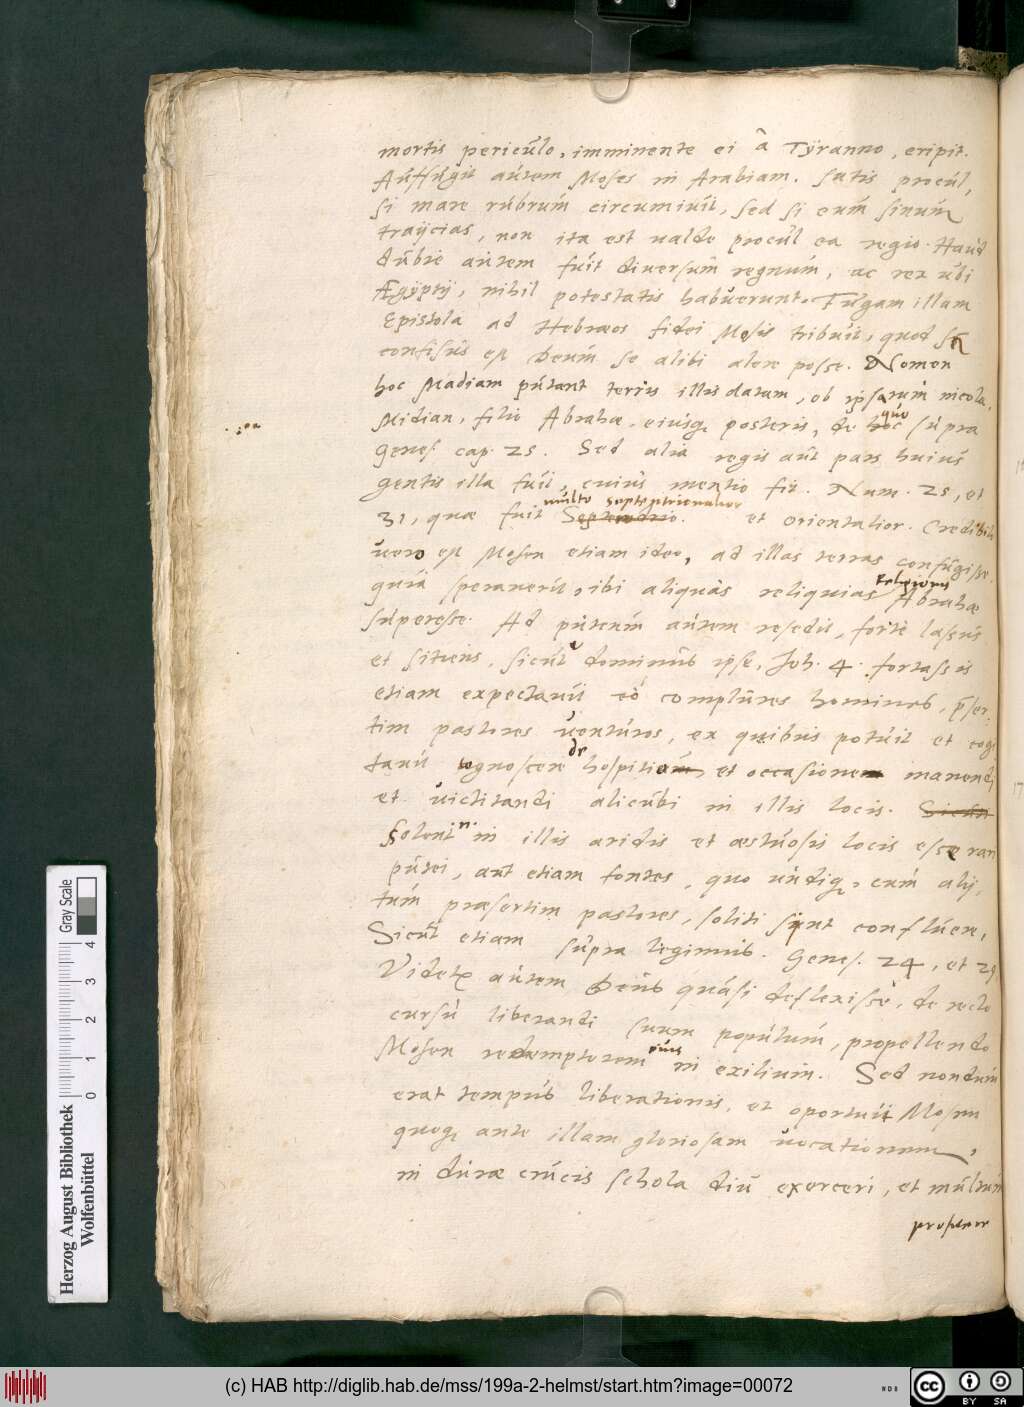 mortis periculo, imminente ei â Tÿranno, eripit.
Auffugit autem Moses in Arabiam. satis procul,
si mare rubrum circumiuit, sed si eum sinum
traijcias, non ita est ualde procul ea regio. Haud
dubie autem fuit diuersum regnum, ac rex ubi
Ægÿptij, nihil potestatis habuerunt. Fugam illam
Epistola ad Hebræos fidei Mosis tribuit, quod
confisus est Deum se alibi alere posse. Nomen
hoc Madiam putant terris illis datum, ob ipsarum
Midian, filio Abrahæ, eiusq posteris, de hoc supra
quo
Genes. cap. 25. Sed alia regis aut pars huius
gentis illa fuit, cuius mentio fit. Num. 25, et
multo septentrionalior
31, quæ fuit et orientalior. Credibile
uero est Mosen etiam ideo, ad illas terras confugisse.
quia sperauerit, ibi aliquas reliquias Abrahæ
Religionis
superesse. Ad puteum autem resedit, forte lassus
et sitiens, sicut dominus ipse, Joh. 4. fortassis
etiam expectauit eo complures homines, p̄ser:
tim pastores uenturos, ex quibus potuit et cogi
de
tauit cognoscere hospitium et occasionem manendi
et uictitandi alicubi in illis locis.
Solent n. in illis aridis et æstuosis locis esse rari
putei, aut etiam fontes, quo undiq, cum alij,
tum præsertim pastores, soliti sunt confluere,
Sicut etiam supra legimus. Genes. 24, et 29
Videtr autem Deus quasi deflexisse, de recto
cursu liberandi suum populum, propellendo
Mosen redemptorem eius in exilium. Sed nondum
erat tempus liberationis, et oportuit Mosen
quoq ante illam gloriosam uocationem,
in duræ crucis schola diu exerceri, et multum
Herzog August Bibliothek
Wolfenbüttel
Gray Scale
0 1 2 3 4
(c) HAB http://diglib.hab.de/mss/199a-2-helmst/start.htm?image=00072
cc BY SA